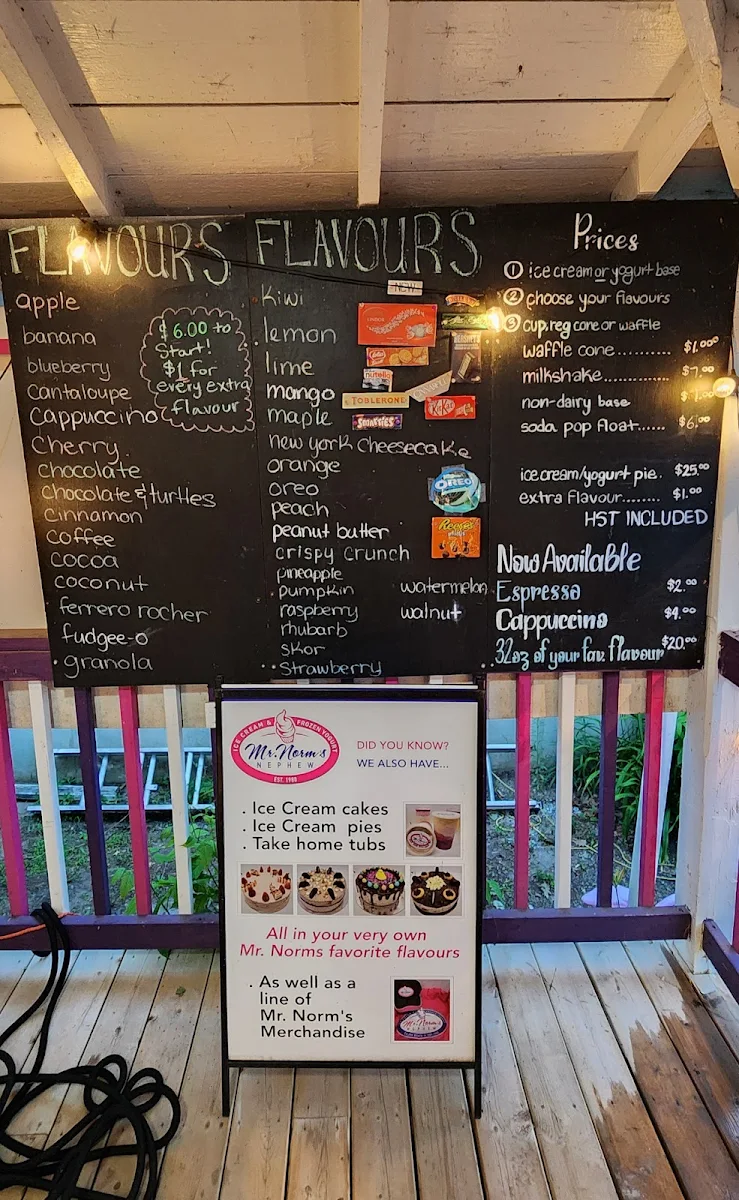 FLAVOURS
apple
banana
blueberry
cantaloupe
cappuccino
cherry
chocolate
chocolate & turtles
cinnamon
coffee
cocoa
coconut
ferrero rocher
fudgee-o
granola
$6.00 to
Start!
$1 for
every extra
flavour
FLAVOURS
kiwi
lemon
lime
mango
maple
new york cheesecake
orange
oreo
peach
peanut butter
crispy crunch
pineapple
pumpkin
raspberry
rhubarb
skor
strawberry
watermelon
walnut
NEW
nutella
TOBLERONE
KitKat
SMARTIES
OREO
Reese's
Prices
① ice cream or yogurt base
② choose your flavours
③ cup, reg cone or waffle
waffle cone.......... $1.00
milkshake............. $7.00
non-dairy base
soda pop float...... $6.00
ice cream/yogurt pie. $25.00
extra flavour........ $1.00
HST INCLUDED
Now Available
Espresso $2.00
Cappuccino $4.00
32oz of your fav. flavour $20.00
ICE CREAM & FROZEN YOGURT
Mr. Norm's
NEPHEW
EST. 1980
DID YOU KNOW?
WE ALSO HAVE...
. Ice Cream cakes
. Ice Cream pies
. Take home tubs
All in your very own
Mr. Norms favorite flavours
. As well as a
line of
Mr. Norm's
Merchandise
Mr. Norm's